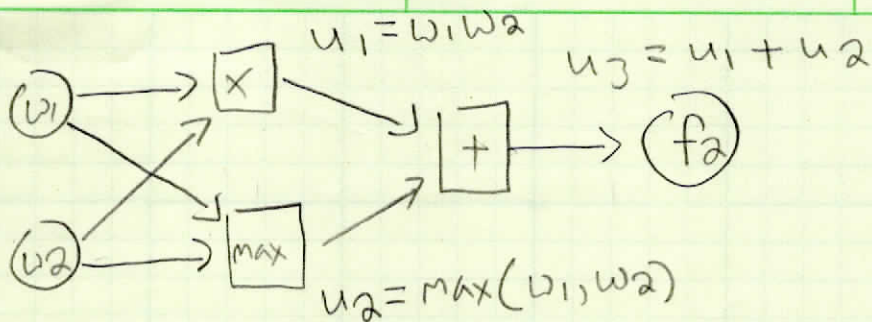 u₁ = w₁w₂
u₃ = u₁ + u₂
w1
x
+
f2
w2
max
u₂ = max(w₁, w₂)